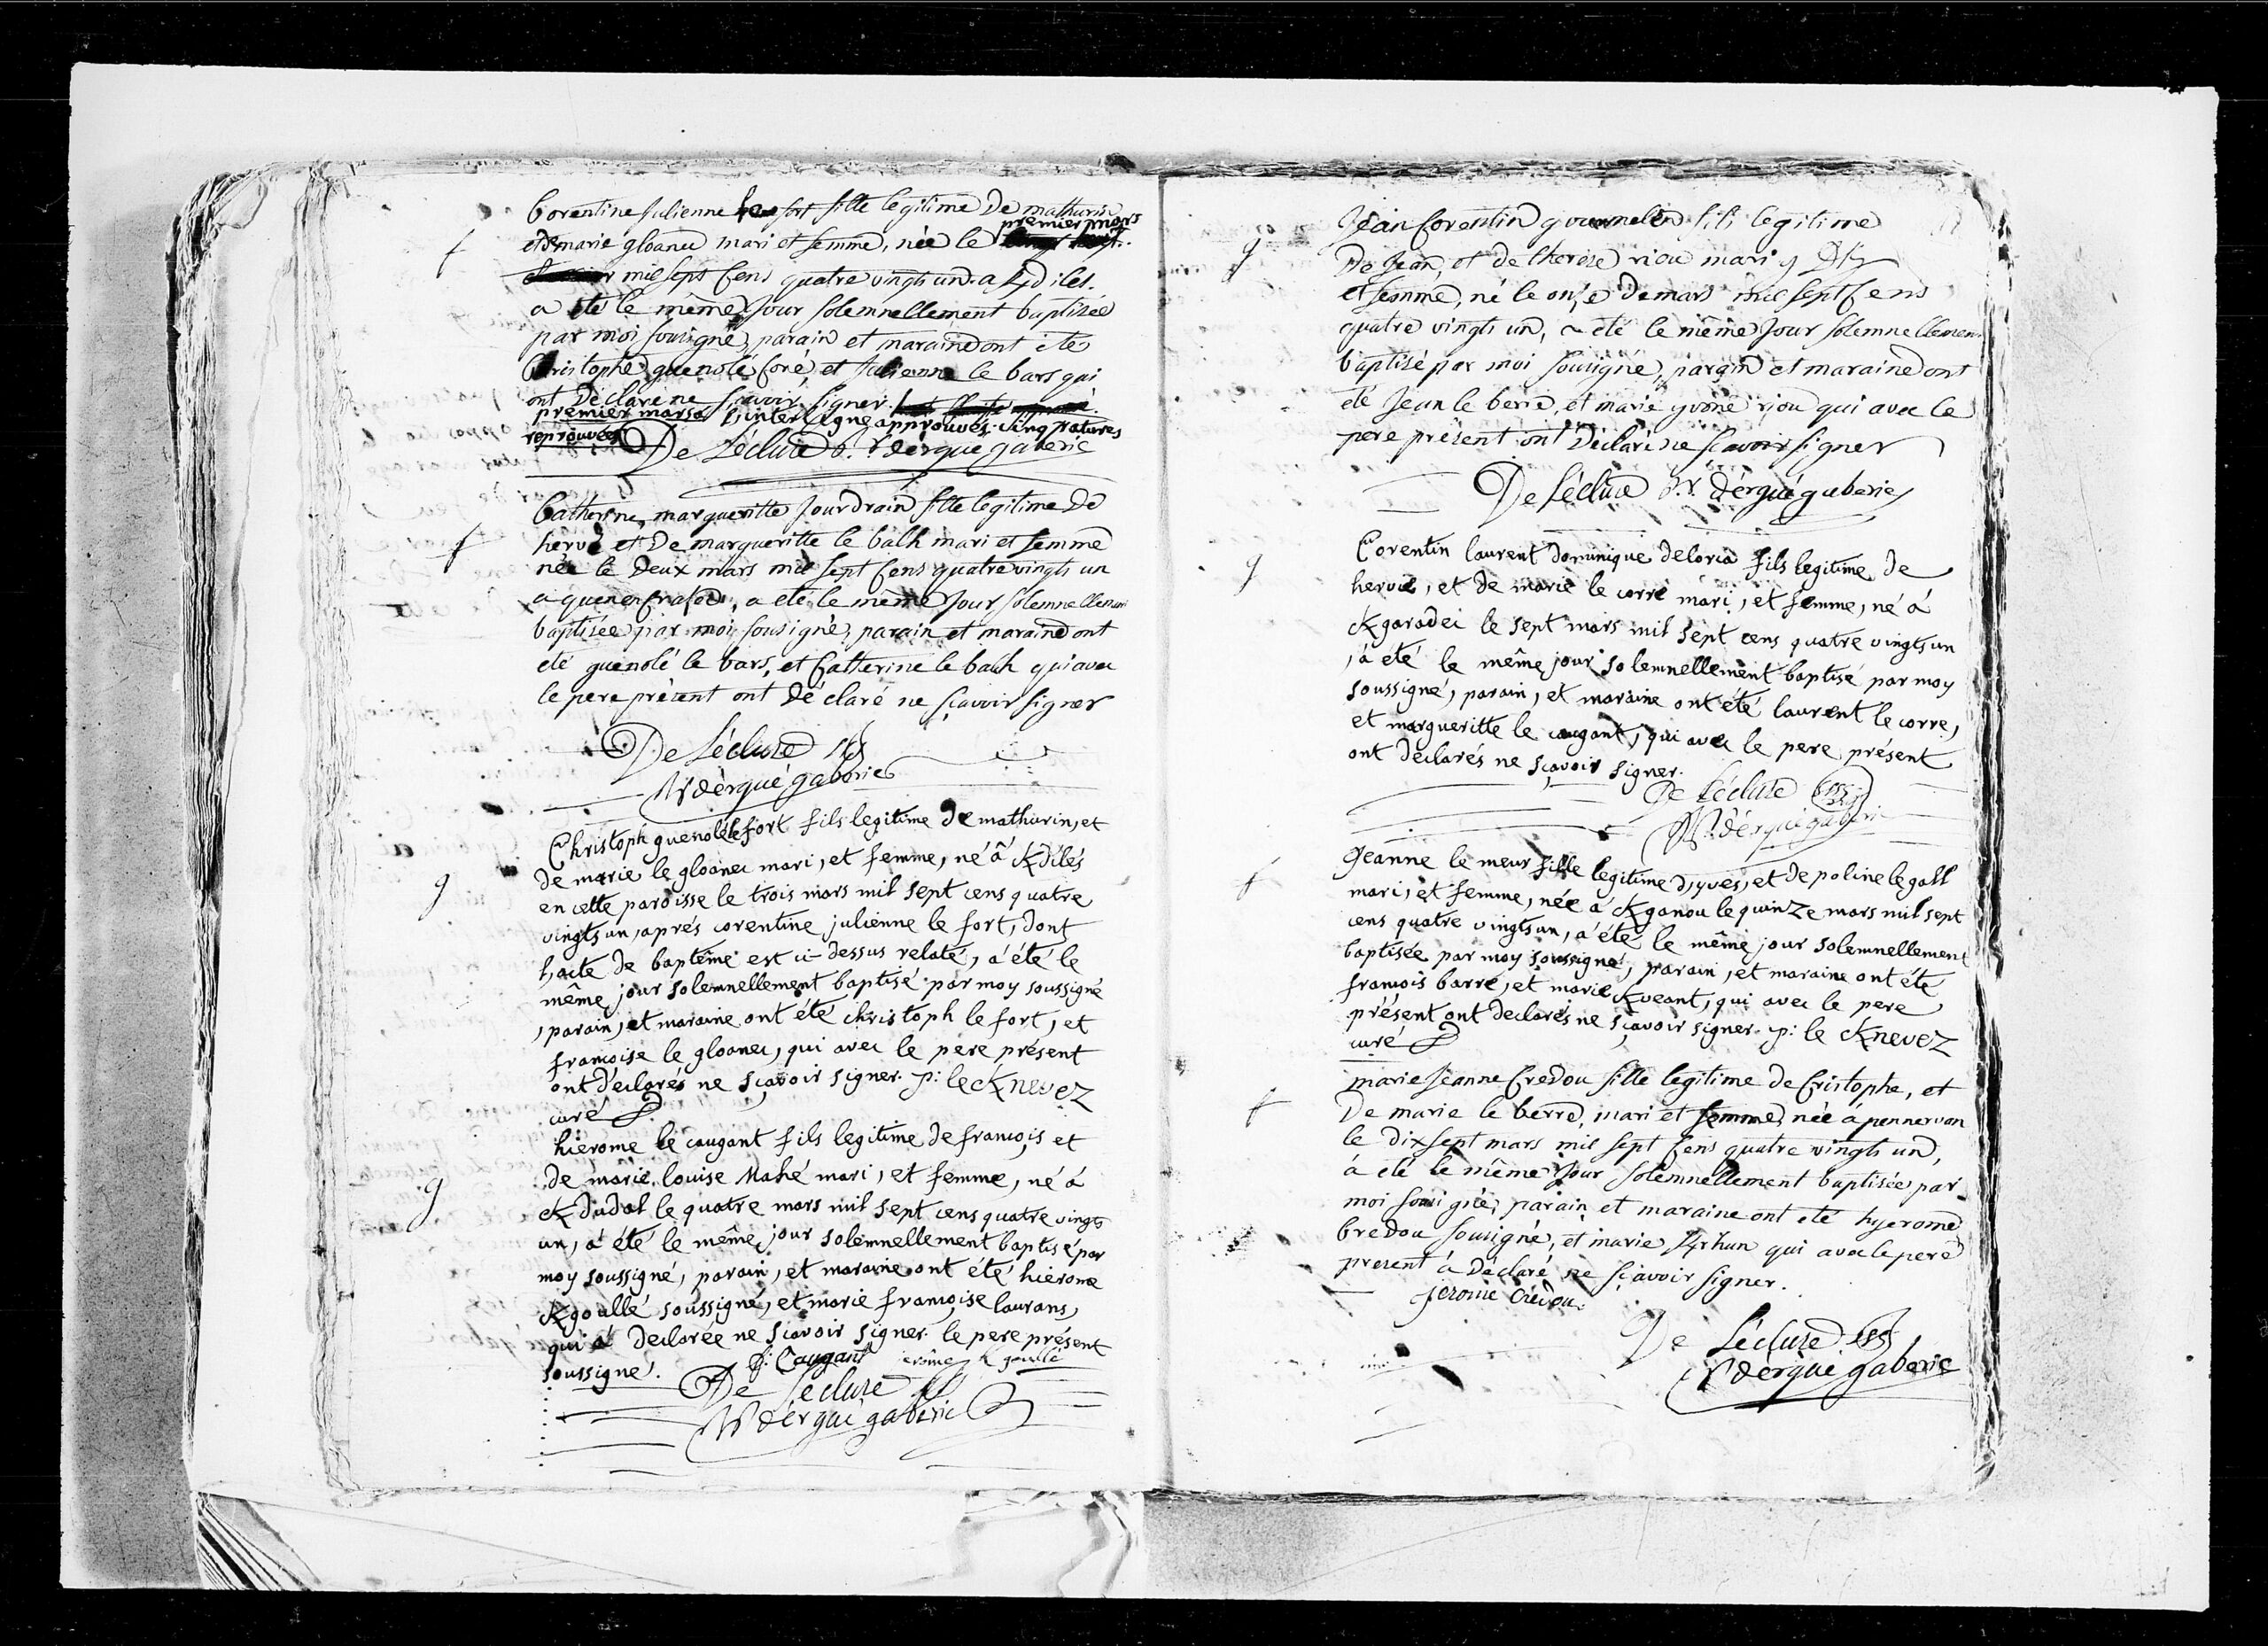 Corentine Julienne le fort fille legitime De mathurin
premier mars
et de marie gloanec mari et femme, née le
mil sept Cens quatre vingts un a K/diles.
a été le même Jour Solemnellement baptisée
par moi Sousigné, parain et maraine ont été
Christophe guenolé foré, et Julienne le bars qui
ont Déclaré ne Sçavoir Signer.
premier mars l'interligne approuvés. cinq ratures
reprouvées De Lécluse R. V dergué gaberic
f
Catherine margueritte Jourdrain fille legitime De
hervé et De margueritte le balh mari et femme
née le Deux mars mil Sept Cens quatre vingts un
a quenen, a été le même Jour Solemnellement
baptisée par moi Sousigné, parain et maraine ont
été guenolé le bars, et Catherine le balh qui avec
le pere présent ont Déclaré ne Sçavoir Signer
De Lécluse
V dergué gaberic
f
Christoph guenolé le fort fils legitime De mathurin, et
de marie le gloanec mari, et femme, né â K/dilés
en cette paroisse le trois mars mil sept cens quatre
g
vingts un, aprés corentine julienne le fort, dont
l'acte de baptême est ci-dessus relaté, á été le
même jour solemnellement baptisé par moy soussigné
, parain, et maraine ont été christoph le fort, et
françoise le gloanec, qui avec le pere présent
ont déclarés ne sçavoir signer. p: le K/nevez
curé
hierome le caugant fils legitime de françois et
de marie louise Mahé mari, et femme, né á
g
K/dudal le quatre mars mil sept cens quatre vingts
un, á été le même jour solemnellement baptisé par
moy soussigné, parain, et maraine ont été hierome
K/goullé soussigné, et marie françoise laurans,
qui á declarée ne sçavoir signer. le pere présent
soussigné. f: Caugant jerôme K goullé
De Lécluse
V dergué gaberic
Jean Corentin gourmelen fils legitime
g
De Jean, et de therese riou mari
et femme, né le onze De mars mil Sept Cens
quatre vingts un, a été le même Jour Solemnellement
baptisé par moi Sousigné, parain et maraine ont
été Jean le berre, et marie yvone riou qui avec le
pere présent ont Déclaré ne Sçavoir Signer
De Lécluse R. V. dergué gaberic
Corentin laurent dominique deloria fils legitime de
g
hervé, et de marie le corre mari, et femme, né á
K/garadec le sept mars mil sept cens quatre vingts un
, á été le même jour solemnellement baptisé par moy
soussigné, parain, et maraine ont été laurent le corre,
et margueritte le caugant, qui avec le pere présent
ont déclarés ne sçavoir signer.
De Lécluse
V. dergué gaberic
jeanne le meur fille legitime d'yves, et de poline le gall
f
mari, et femme, née á K/ganou le quinze mars mil sept
cens quatre vingts un, á été le même jour solemnellement
baptisée par moy soussigné, parain, et maraine ont été
françois barré, et marie K/veant, qui avec le pere
présent ont declarés ne sçavoir signer. p: le K/nevez
curé
marie Jeanne Credou fille legitime de Cristophe, et
f
De marie le berre, mari et femme, née á pennervan
le Dix sept mars mil Sept Cens quatre vingts un,
á été le même Jour Solemnellement baptisée par
moi Sousigné, parain et maraine ont été hyerome
Credou Sousigné, et marie K/hun qui avec le pere
present á Déclaré ne Sçavoir Signer.
jerome Crédou.
De Lécluse
V dergué gaberic